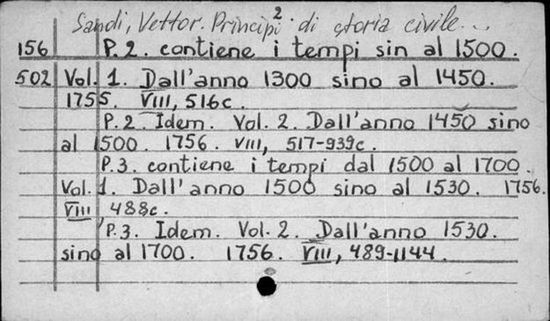 Sandi, Vettor. Principi 2 di storia civile...
156 P. 2. contiene i tempi sin al 1500.
502 Vol. 1. Dall'anno 1300 sino al 1450.
1755. VIII, 516c.
P. 2. Idem. Vol. 2. Dall'anno 1450 sino
al 1500. 1756. VIII, 517-939c.
P. 3. contiene i tempi dal 1500 al 1700.
Vol. 1. Dall'anno 1500 sino al 1530. 1756.
VIII 488c.
P. 3. Idem. Vol. 2. Dall'anno 1530.
sino al 1700. 1756. VIII, 489-1144.